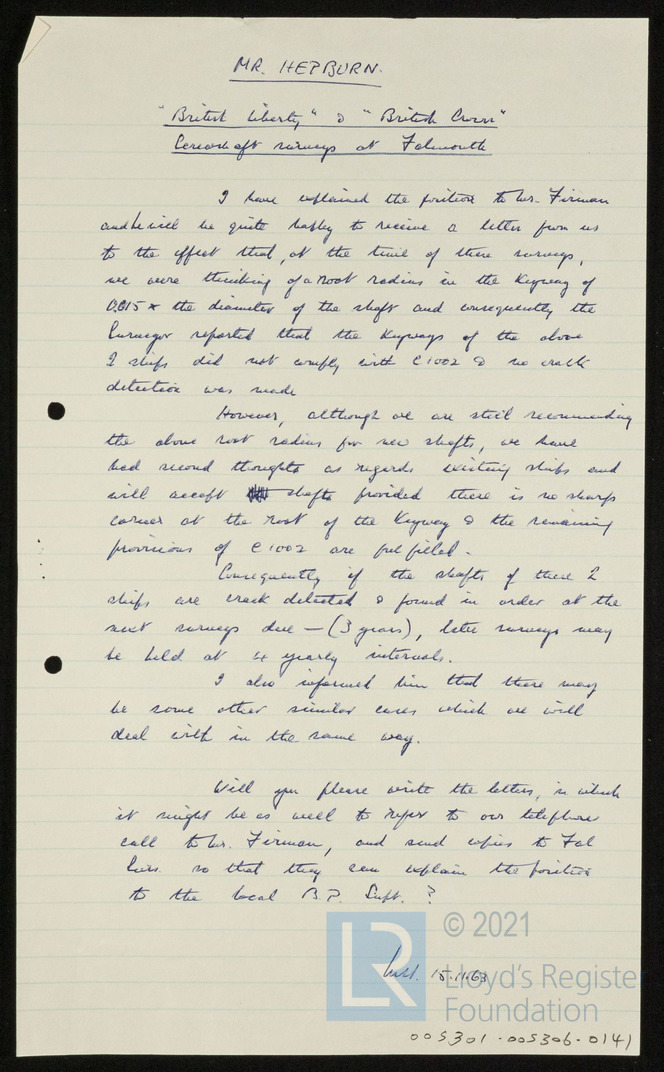 MR. HEPBURN.
"British Liberty" & "British Crown"
Screwshaft surveys at Falmouth
I have explained the position to Mr. Firman
and he will be quite happy to receive a letter from us
to the effect that, at the time of these surveys,
we were thinking of a root radius in the keyway of
0.015 x the diameter of the shaft and consequently the
Surveyor reported that the keyways of the above
2 ships did not comply with C1002 & no crack
detection was made
However, although we are still recommending
the above root radius for new shafts, we have
had second thoughts as regards existing ships and
will accept shafts provided there is no sharp
corner at the root of the keyway & the remaining
provisions of C1002 are fulfilled.
Consequently if the shafts of these 2
ships are crack detected & found in order at the
next surveys due - (3 years), later surveys may
be held at 4 yearly intervals.
I also informed him that there may
be some other similar cases which we will
deal with in the same way.
Will you please write the letters, in which
it might be as well to refer to our telephone
call to Mr. Firman, and send copies to Fal
Surs. so that they can explain the position
to the local B.P. Supt. ?
15.11.63
© 2021
LR
Lloyd's Register
Foundation
005301-005306-0141